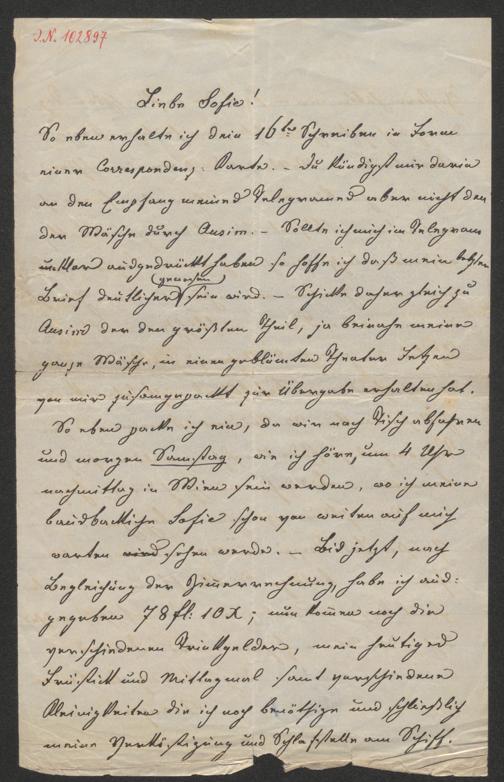 J.N. 102897
Liebe Sofie!
So eben erhalte ich dein 16tes Schreiben in Form
einer Correspondenz: Karte. – Du kündigst mir darin
an den Empfang meines Telegrames aber nicht den
der Wäsche durch Ansim. – Sollte ich mich im Telegram
unklar ausgedrückt haben so hoffe ich daß mein letzter
Brief deutlicher (gewesen) sein wird. – Schicke daher gleich zu
Ansim der den größten Theil, ja beinahe meine
ganze Wäsche, in einen geblümten Theater Fetzen
von mir zusamgepackt zur Übergabe erhalten hat.
So eben packe ich ein, da wir nach Tisch abfahren
und morgen Samstag, wie ich höre, um 4 Uhr
nachmittag in Wien sein werden, wo ich meine
Sofie schon von weiten auf mich
warten sehen werde. – Bis jetzt, nach
Begleichung der Zimmerrechnung, habe ich aus:
gegeben 78 fl: 10 X; nun kommen noch die
verschiedenen Trinkgelder, mein heutiges
Frühstück und Mittagmal samt verschiedene
Kleinigkeiten die ich noch benöthige und schließlich
meine Verköstigung und Schlafstelle am Schiff.